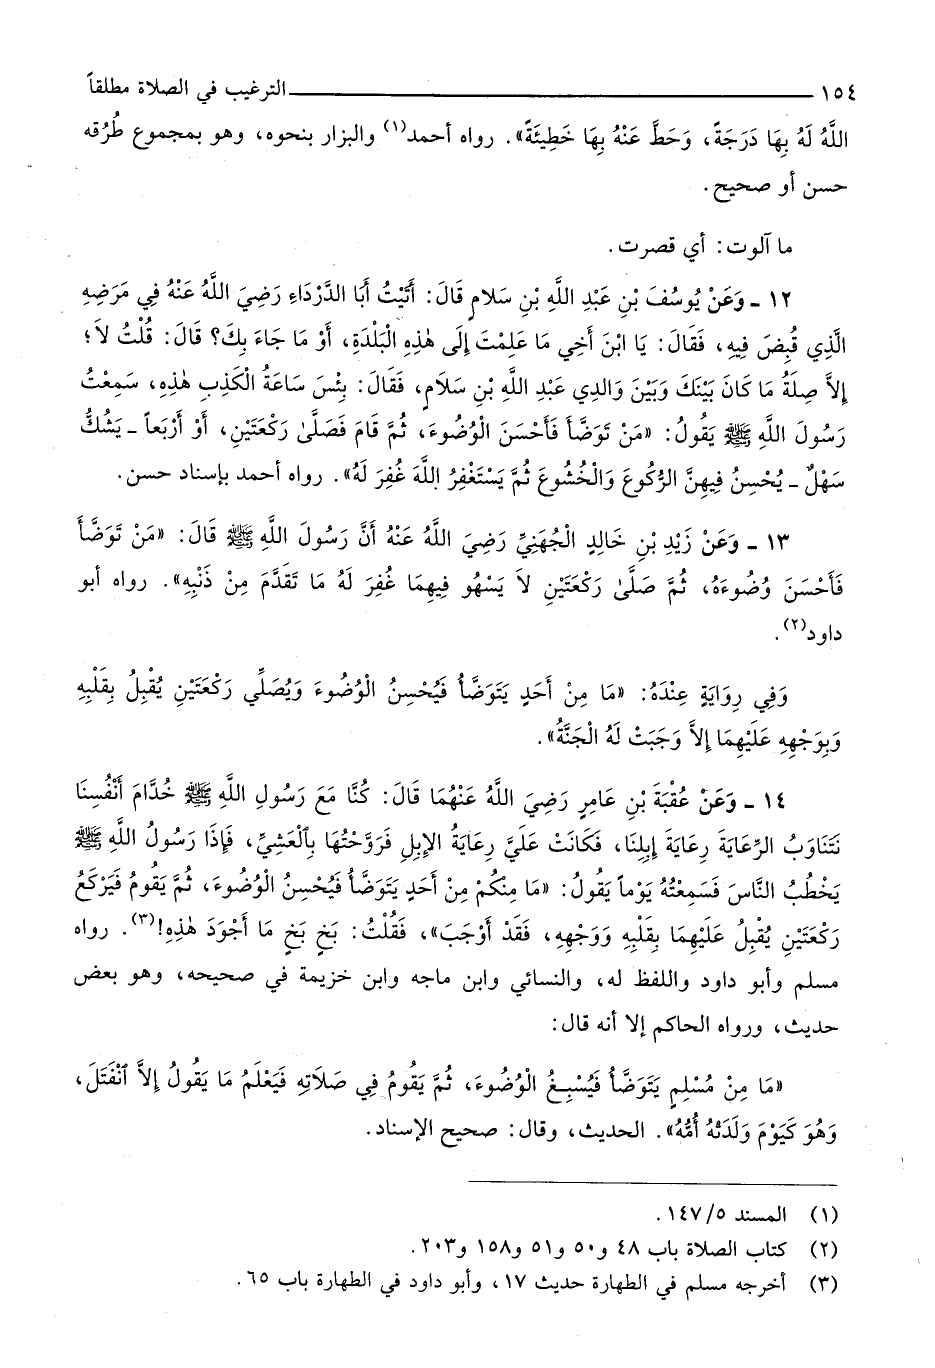 ١٥٤ ـــــــــــــــــــــ الترغيب في الصلاة مطلقاً
اللَّهُ لَهُ بِهَا دَرَجَةً، وَحَطَّ عَنْهُ بِهَا خَطِيئَةً». رواه أحمد(١) والبزار بنحوه، وهو بمجموع طُرُقه
حسن أو صحيح.
ما آلوت: أي قصرت.
١٢ ـ وَعَنْ يُوسُفَ بْنِ عَبْدِ اللَّهِ بْنِ سَلَامٍ قَالَ: أَتَيْتُ أَبَا الدَّرْدَاءِ رَضِيَ اللَّهُ عَنْهُ فِي مَرَضِهِ
الَّذِي قُبِضَ فِيهِ، فَقَالَ: يَا ابْنَ أَخِي مَا عَلِمْتَ إِلَى هٰذِهِ الْبَلْدَةِ، أَوْ مَا جَاءَ بِكَ؟ قَالَ: قُلْتُ لاَ؛
إِلاَّ صِلَةُ مَا كَانَ بَيْنَكَ وَبَيْنَ وَالِدِي عَبْدِ اللَّهِ بْنِ سَلَامٍ، فَقَالَ: بِئْسَ سَاعَةُ الْكَذِبِ هٰذِهِ، سَمِعْتُ
رَسُولَ اللَّهِ ﷺ يَقُولُ: «مَنْ تَوَضَّأَ فَأَحْسَنَ الْوُضُوءَ، ثُمَّ قَامَ فَصَلَّىٰ رَكْعَتَيْنِ، أَوْ أَرْبَعاً ـ يَشُكُّ
سَهْلٌ ـ يُحْسِنُ فِيهِنَّ الرُّكُوعَ وَالْخُشُوعَ ثُمَّ يَسْتَغْفِرُ اللَّهَ غُفِرَ لَهُ». رواه أحمد بإسناد حسن.
١٣ ـ وَعَنْ زَيْدِ بْنِ خَالِدٍ الْجُهَنِيِّ رَضِيَ اللَّهُ عَنْهُ أَنَّ رَسُولَ اللَّهِ ﷺ قَالَ: «مَنْ تَوَضَّأَ
فَأَحْسَنَ وُضُوءَهُ، ثُمَّ صَلَّىٰ رَكْعَتَيْنِ لاَ يَسْهُو فِيهِمَا غُفِرَ لَهُ مَا تَقَدَّمَ مِنْ ذَنْبِهِ». رواه أبو
داود(٢).
وَفِي رِوَايَةٍ عِنْدَهُ: «مَا مِنْ أَحَدٍ يَتَوَضَّأُ فَيُحْسِنُ الْوُضُوءَ وَيُصَلِّي رَكْعَتَيْنِ يُقْبِلُ بِقَلْبِهِ
وَبِوَجْهِهِ عَلَيْهِمَا إِلاَّ وَجَبَتْ لَهُ الْجَنَّةُ».
١٤ ـ وَعَنْ عُقْبَةَ بْنِ عَامِرٍ رَضِيَ اللَّهُ عَنْهُمَا قَالَ: كُنَّا مَعَ رَسُولِ اللَّهِ ﷺ خُدَّامَ أَنْفُسِنَا
نَتَنَاوَبُ الرِّعَايَةَ رِعَايَةَ إِبِلِنَا، فَكَانَتْ عَلَيَّ رِعَايَةُ الإِبِلِ فَرَوَّحْتُهَا بِٱلْعَشِيِّ، فَإِذَا رَسُولُ اللَّهِ ﷺ
يَخْطُبُ النَّاسَ فَسَمِعْتُهُ يَوْماً يَقُولُ: «مَا مِنْكُمْ مِنْ أَحَدٍ يَتَوَضَّأُ فَيُحْسِنُ الْوُضُوءَ، ثُمَّ يَقُومُ فَيَرْكَعُ
رَكْعَتَيْنِ يُقْبِلُ عَلَيْهِمَا بِقَلْبِهِ وَوَجْهِهِ، فَقَدْ أَوْجَبَ»، فَقُلْتُ: بَخٍ بَخٍ مَا أَجْوَدَ هٰذِهِ!(٣). رواه
مسلم وأبو داود واللفظ له، والنسائي وابن ماجه وابن خزيمة في صحيحه، وهو بعض
حديث، ورواه الحاكم إلا أنه قال:
«مَا مِنْ مُسْلِمٍ يَتَوَضَّأُ فَيُسْبِغُ الْوُضُوءَ، ثُمَّ يَقُومُ فِي صَلَاتِهِ فَيَعْلَمُ مَا يَقُولُ إِلاَّ ٱنْفَتَلَ،
وَهُوَ كَيَوْمَ وَلَدَتْهُ أُمُّهُ». الحديث، وقال: صحيح الإسناد.
(١) المسند ٥/١٤٧.
(٢) كتاب الصلاة باب ٤٨ و٥٠ و٥١ و١٥٨ و٢٠٣.
(٣) أخرجه مسلم في الطهارة حديث ١٧، وأبو داود في الطهارة باب ٦٥.